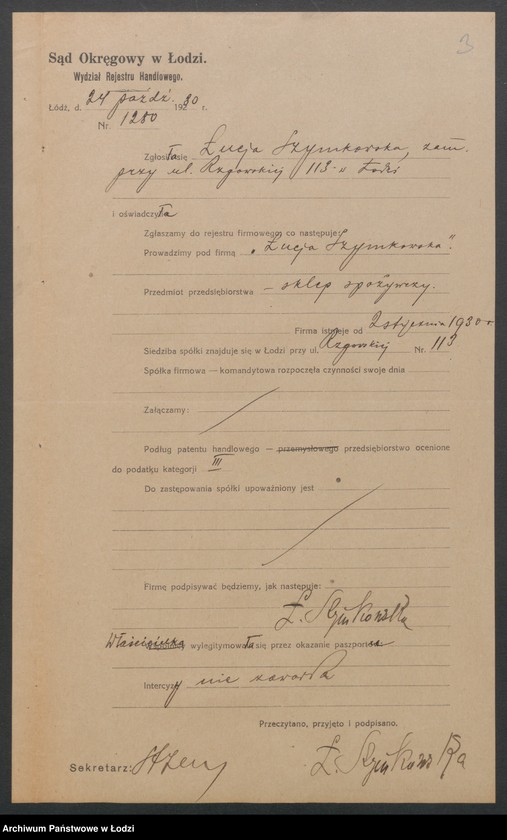 3
Sąd Okręgowy w Łodzi.
Wydział Rejestru Handlowego.
Łódź, d. 24 paźdź. 1930 r.
Nr. 1280
Zgłosiła się Łucja Szymkowska, zam.
przy ul. Rzgowskiej 113 w Łodzi
i oświadczyła
Zgłaszamy do rejestru firmowego, co następuje:
Prowadzimy pod firmą „Łucja Szymkowska”.
Przedmiot przedsiębiorstwa – sklep spożywczy.
Firma istnieje od 2 stycznia 1930 r.
Siedziba spółki znajduje się w Łodzi przy ul. Rzgowskiej Nr. 113
Spółka firmowa — komandytowa rozpoczęła czynności swoje dnia
Załączamy:
Podług patentu handlowego — przemysłowego przedsiębiorstwo ocenione
do podatku kategorji III
Do zastępowania spółki upoważniony jest
Firmę podpisywać będziemy, jak następuje:
Ł. Szymkowska
Właścicielka wylegitymowała się przez okazanie paszportu
Intercyzy nie zawarła
Przeczytano, przyjęto i podpisano.
Sekretarz:
Ł. Szymkowska
Archiwum Państwowe w Łodzi